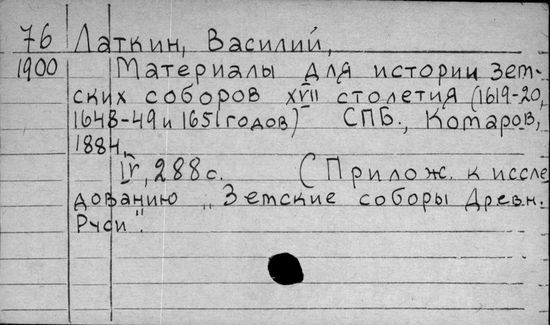 76 Латкин, Василий,
1900 Материалы для истории зем-
ских соборов XVII столетия (1619-20,
1648-49 и 1651 годов) СПБ., Комаров,
1884.
IV, 288 с. (Прилож. к иссле
дованию „Земские соборы Древн.
Руси".